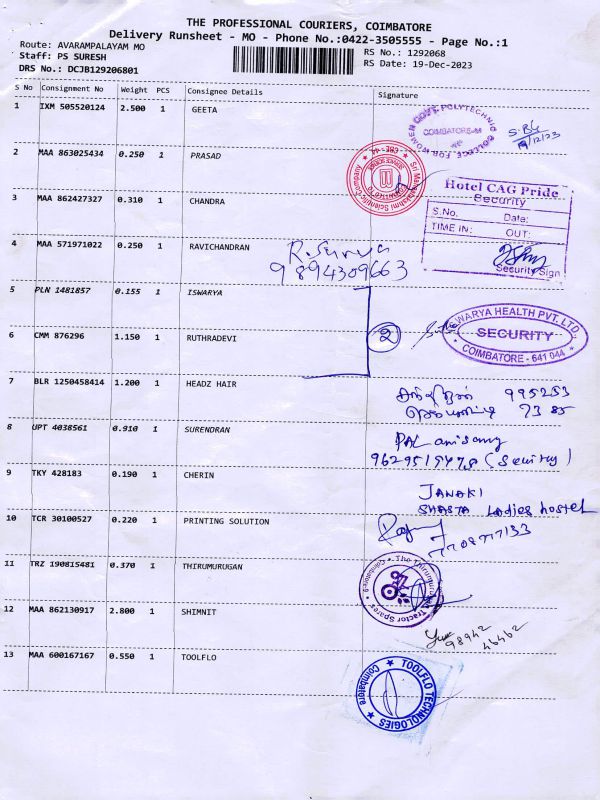 THE PROFESSIONAL COURIERS, COIMBATORE
Delivery Runsheet - MO - Phone No.:0422-3505555 - Page No.:1
Route: AVARAMPALAYAM MO
RS No.: 1292068
Staff: PS SURESH
RS Date: 19-Dec-2023
DRS No.: DCJB129206801
S No Consignment No Weight PCS Consignee Details Signature
1 IXM 505520124 2.500 1 GEETA
GOVT. POLYTECHNIC COLLEGE FOR WOMEN
COIMBATORE-44
19/12/23
2 MAA 863025434 0.250 1 PRASAD
Sri Mahalakshmi Scientific Company
CBE-44
3 MAA 862427327 0.310 1 CHANDRA
Hotel CAG Pride
Security
S.No. Date:
TIME IN: OUT:
Security Sign
4 MAA 571971022 0.250 1 RAVICHANDRAN
R. Surya
9894309663
5 PLN 1481857 0.155 1 ISWARYA
WARYA HEALTH PVT. LTD.
SECURITY
COIMBATORE - 641 044
6 CMM 876296 1.150 1 RUTHRADEVI
2
7 BLR 1250458414 1.200 1 HEADZ HAIR
995253
7385
8 UPT 4038561 0.910 1 SURENDRAN
PAL
(Security)
9 TKY 428183 0.190 1 CHERIN
JANAKI
SHASTA Ladies hostel
10 TCR 30100527 0.220 1 PRINTING SOLUTION
7708777133
11 TRZ 190815481 0.370 1 THIRUMURUGAN
The Thirumurugan Tractor Spares
Coimbatore
12 MAA 862130917 2.800 1 SHIMNIT
98942
46462
13 MAA 600167167 0.550 1 TOOLFLO
TOOLFLO TECHNOLOGIES
Coimbatore